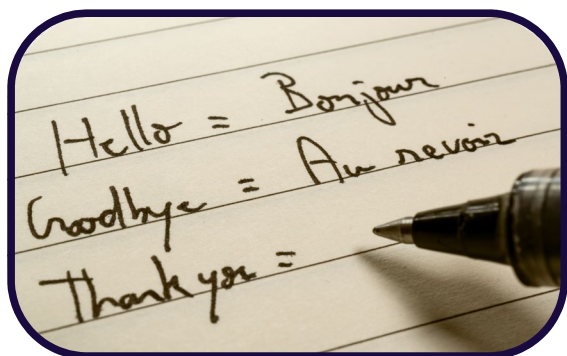 Hello = Bonjour
Goodbye = Au revoir
Thank you =